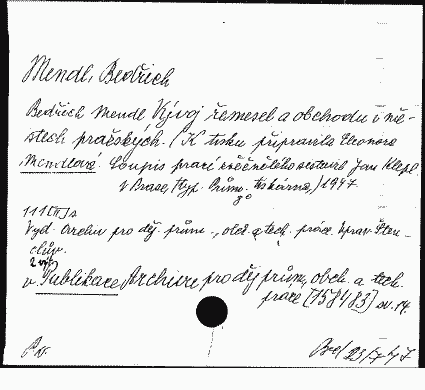 Mendl, Bedřich
Bedřich Mendl Vývoj řemesel a obchodu v mě-
stech pražských. (K tisku připravila Eleonora
Mendlová. Soupis prací sestavil Jan Klepl
V Praze, Typ. Prům. tiskárna,) 1947
8°
111 [II] s
Vyd. Archiv pro děj. prům., obch. a tech. práce.
v Publikace Archivu pro děj. průmy, obch. a tech.
práce [158483] sv. 14.
23/ 47